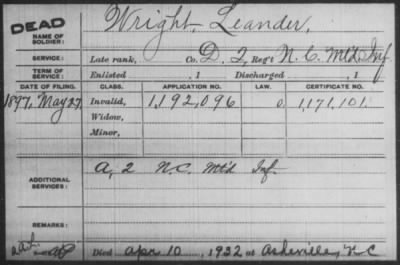 DEAD
Wright, Leander,
NAME OF SOLDIER:
SERVICE: Late rank, Co. D. 2, Reg't N. C. Mtd. Inf.
TERM OF SERVICE: Enlisted , 1 Discharged , 1
DATE OF FILING. CLASS. APPLICATION NO. LAW. CERTIFICATE NO.
1897, May 27 Invalid, 1,192,096 1,171,101.
Widow,
Minor,
ADDITIONAL SERVICES: A, 2 N.C. Mt'd Inf.
REMARKS:
Died Apr 10, 1922 at Asheville, N C